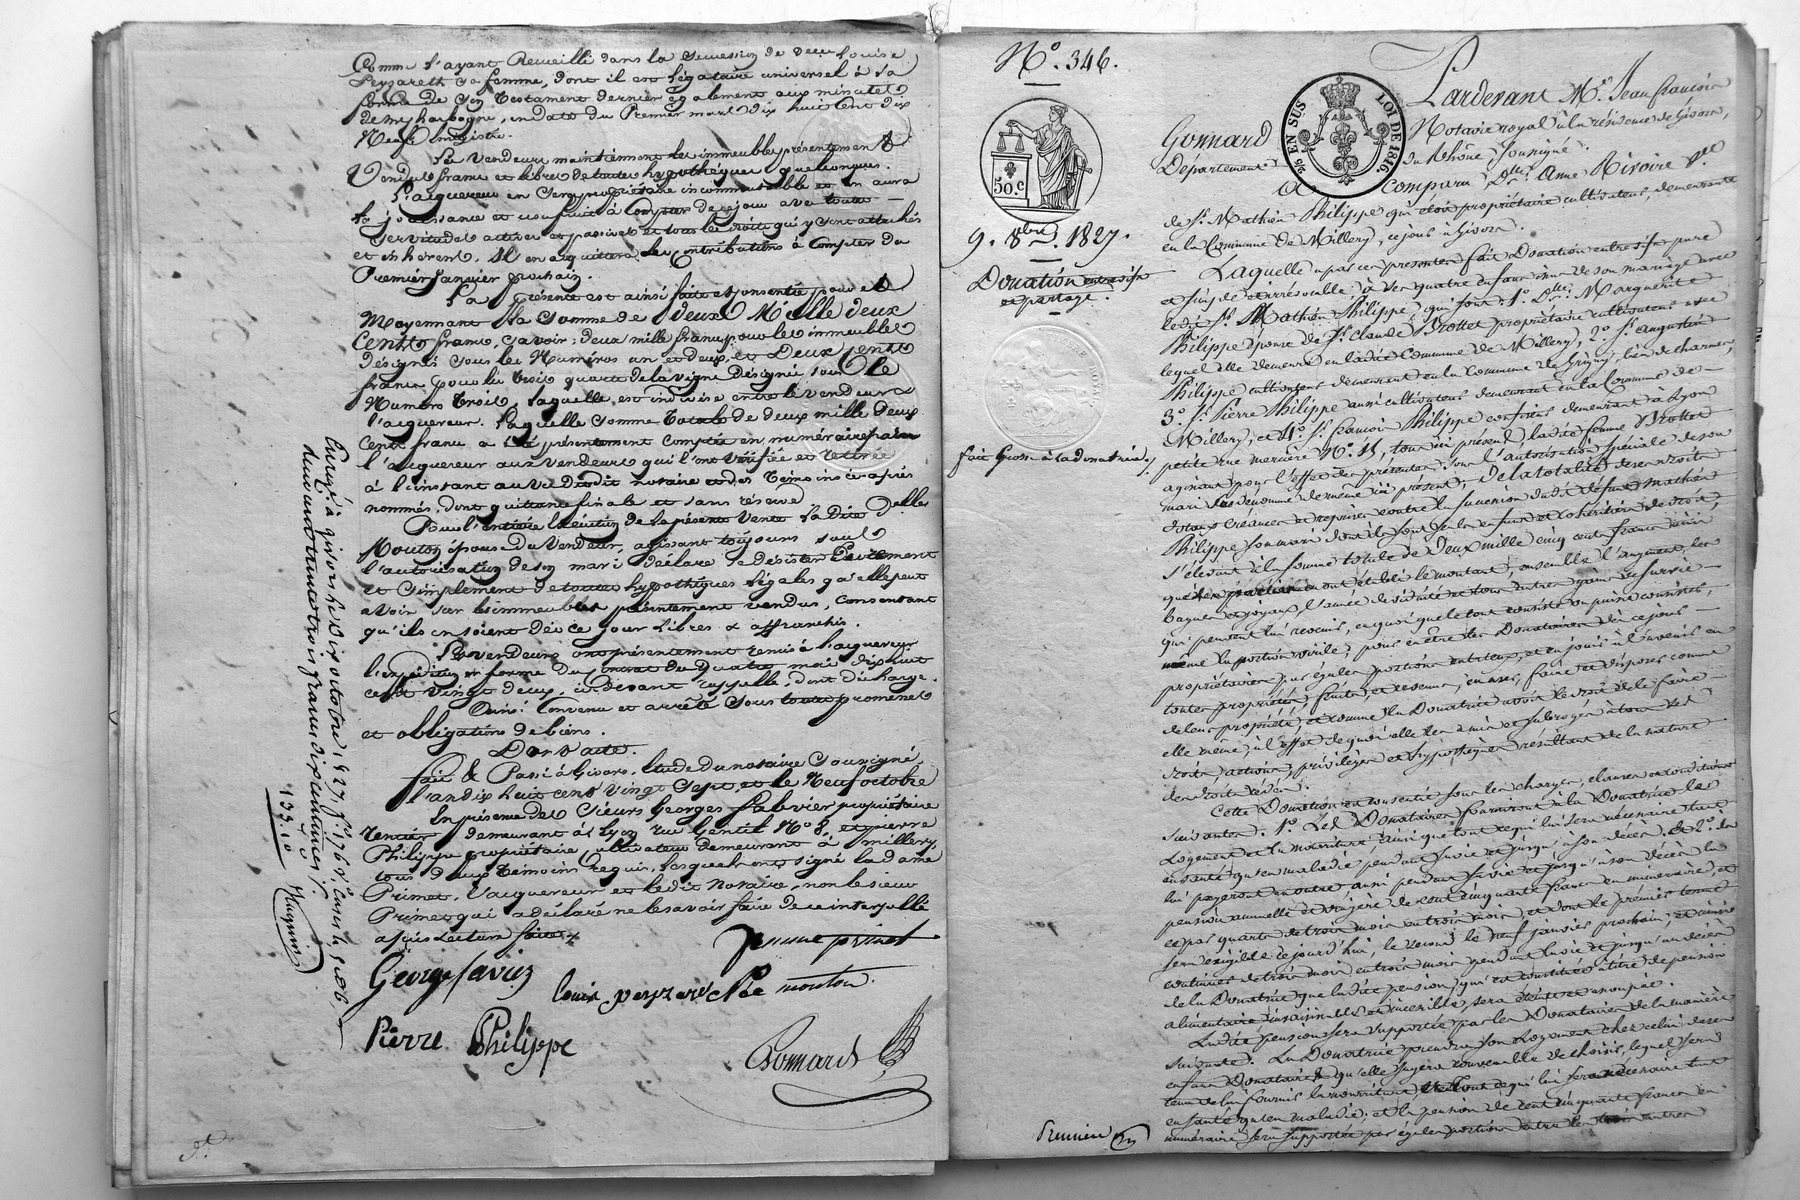 Comme l'ayant Recueilli dans la Succession de Delle Louise
Peyzareth sa femme, dont il est légataire universel à la
forme de son testament dernier également aux minutes
de Me harsogne, en date du Premier mars dix huit cent dix
Neuf enregistré.
Le Vendeur maintiennent les immeubles présentement
Vendus francs et libres de toutes hypothèques quelconques.
L'acquereur en sera propriétaire incommutable et en aura
la jouissance et usufruit à Compter de ce jour avec toutes
servitudes actives et passives et tous les droits qui y sont attachés
et inhérent. Il en acquittera les Contributions à Compter du
Premier Janvier prochain.
La présente est ainsi faite et consentie pour et
Moyennant la somme de Deux Mille deux
Cents francs, savoir: deux mille francs pour les immeubles
désignés sous les Numéros un et deux, et Deux Cents
francs pour les trois quarts de la vigne Désignée sous le
Numéro trois, laquelle est indivise entre le vendeur &
l'acquereur. Laquelle somme totale de deux mille deux
Cent francs a été présentement comptée en numéraire par
l'acquereur aux vendeurs qui l'ont vérifiée et retirée
à l'instant au Vu dudit notaire et des témoins ci après
nommés, dont quittance finale et sans réserve
Pour l'entière exécution de la présente Vente la Dite Delle
Mouton épouse du Vendeur, agissant toujours sous
l'autorisation de son mari déclare se désister Purement
et Simplement de toutes hypothèques légales qu'elle peut
avoir sur les immeubles présentement vendus, Consentant
qu'ils en soient dès ce jour libres & affranchis.
Les vendeurs ont présentement remis à l'acquereur
l'expédition en forme du Contrat du Quatre mai dix huit
cent vingt deux, ci-devant rappellé, dont décharge.
Ainsi Convenu et arrêté sous toutes promesses
et obligations de biens.
Dont acte.
fait & Passé à Givors, Etude du notaire Soussigné
l'an dix huit cent vingt sept, et le Neuf octobre
en présence des Sieurs Georges favier propriétaire
rentier demeurant à Lyon rue Gentil No 8, et pierre
Philippe propriétaire, cultivateur demeurant à millery,
tous deux témoins requis, lesquels ont signé la dame
Primet, l'acquereur et ledit Notaire, non le sieur
Primet qui a déclaré ne le savoir faire de ce interpellé
après Lecture faite
femme primet
George favier
Louis peyzaret née mouton
Pierre Philippe
Gonnard
Enregé à givors le dix octobre 1827, fo 176
deux cent trente trois francs dix centimes
133.10
No. 346.
50 c
9. 8bre 1827.
Donation entre vifs
et partage.
fait Grosse à la donatrice
2/10 EN SUS LOI DE 1816
Pardevant Me Jean francois
Gonnard Notaire royal à la résidence de Givors,
Département du Rhône soussigné.
a comparu Dlle Anne Rivoire Vve
de Sr. Mathieu Philippe, qui étoit propriétaire cultivateur, demeurante
en la Commune de Millery, ce jour à Givors.
Laquelle a par ces présentes fait Donation entre vifs pure
et simple et irrévocable, à ses quatre enfans issus de son mariage avec
ledit Sr. Mathieu Philippe, qui sont: 1o. Dlle Marguerite
Philippe épouse de Sr. Claude Brottet propriétaire cultivateur avec
lequel elle demeure en ladite Commune de Millery, 2o. Sr. augustin
Philippe cultivateur demeurant en la Commune de Grigny, lieu de charnev,
3o. Sr. Pierre Philippe aussi cultivateur demeurant en la Commune de
Millery, et 4o. Sr. francois Philippe confiseur demeurant à Lyon
petite rue mercière No. 11, tous ici présents, ladite femme Brottet
agissant pour l'effet des présentes sous l'autorisation spéciale de son
mari susdénommé de même ici présent, De la totalité de ses droits
dotaux créances et reprises contre la succession dudit défunt Mathieu
Philippe son mari dont ils sont seuls enfans et cohéritiers de droit,
s'élevant à la somme totale de Deux mille cinq cents francs ainsi
que les parties en ont établi le montant, ensemble l'augment, les
bagues et joyaux, l'année de viduité et tous autres gains de survie
qui peuvent lui revenir, en quoi que le tout consiste ou puisse consister,
même la portion virile; pour en être les Donataires dès ce jour
propriétaires par égales portions entr'eux, et en jouir à l'avenir en
toutes propriétés, fruits et revenus, en user, faire et disposer comme
de leur propriété et comme la Donatrice avoit le droit de le faire
elle même, à l'effet de quoi elle les a mis et subrogés à tous ses
droits, actions, privilèges et hypothèques résultant de la nature
des droits cédés.
Cette Donation est consentie sous les charges, clauses et conditions
suivantes: 1o. Les Donataires fourniront à la Donatrice le
Logement et la nourriture, ainsi que tout ce qui lui sera nécessaire tant
en santé qu'en maladie pendant sa vie et jusqu'à son décès, et 2o. ils
lui payeront en outre aussi pendant sa vie et jusqu'à son décès la
pension annuelle et viagère de cent cinquante francs en numéraire, et
ce par quarts de trois mois en trois mois, et dont le premier terme
sera exigible ce jourd'hui, le second le neuf janvier prochain, et ainsi
continuer de trois mois en trois mois pendant la vie et jusqu'au décès
de la Donatrice que ladite pension, qui est constituée à titre de pension
alimentaire insaisissable et incessible, sera éteinte et amortie.
Ladite pension sera supportée par les Donataires de la manière
suivante: La Donatrice prendra son Logement chez celui de ses
enfans Donataires qu'elle jugera convenable de choisir, lequel sera
tenu de lui fournir la nourriture, et tout ce qui lui sera nécessaire tant
en santé qu'en maladie; et la pension de cent cinquante francs en
numéraire sera supportée par égales portions entre les trois autres
Première